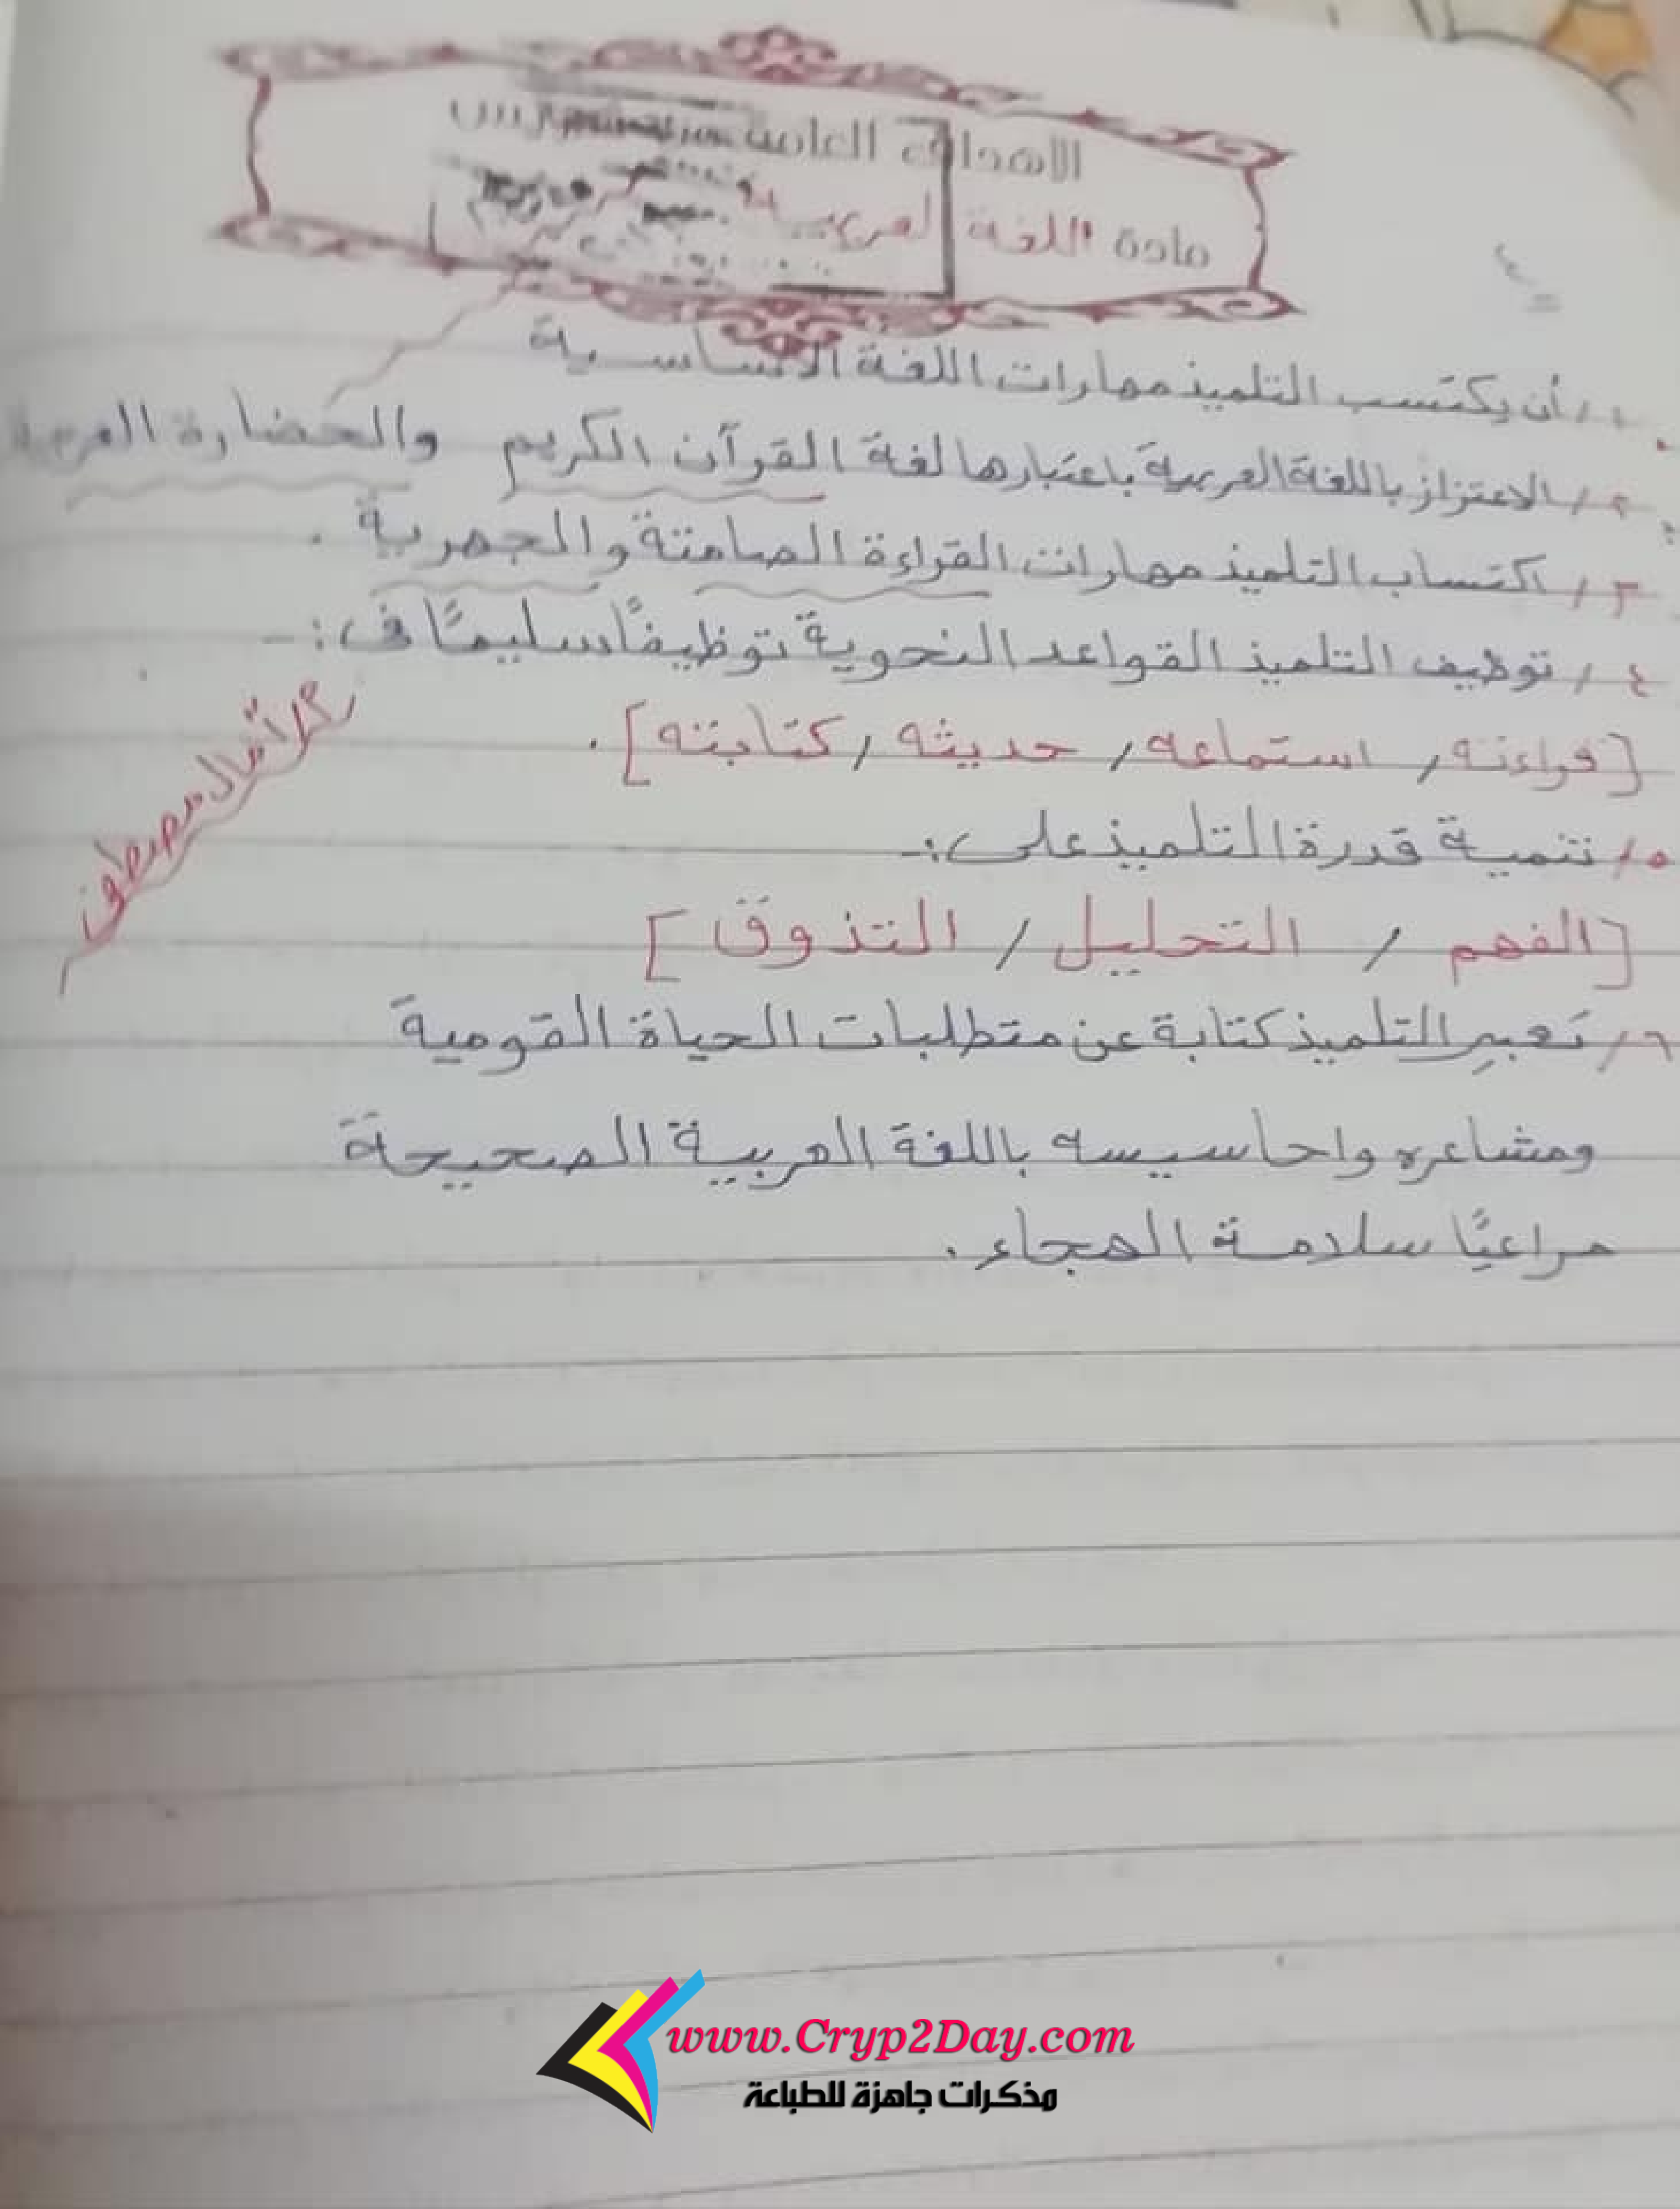 الاهداف العامة
مادة اللغة العربية
١/ أن يكتسب التلميذ مهارات اللغة الأساسية
٢/ الاعتزاز باللغة العربية باعتبارها لغة القرآن الكريم والحضارة العربية
٣/ اكتساب التلميذ مهارات القراءة الصامتة والجهرية .
٤/ توظيف التلميذ القواعد النحوية توظيفًا سليمًا فى :-
[قراءته / استماعه / حديثه / كتابته] .
٥/ تنمية قدرة التلميذ على :-
[الفهم / التحليل / التذوق]
٦/ تعبير التلميذ كتابة عن متطلبات الحياة القومية
ومشاعره واحاسيسه باللغة العربية الصحيحة
مراعيًا سلامة الهجاء .
مصطفى
www.Cryp2Day.com
مذكرات جاهزة للطباعة